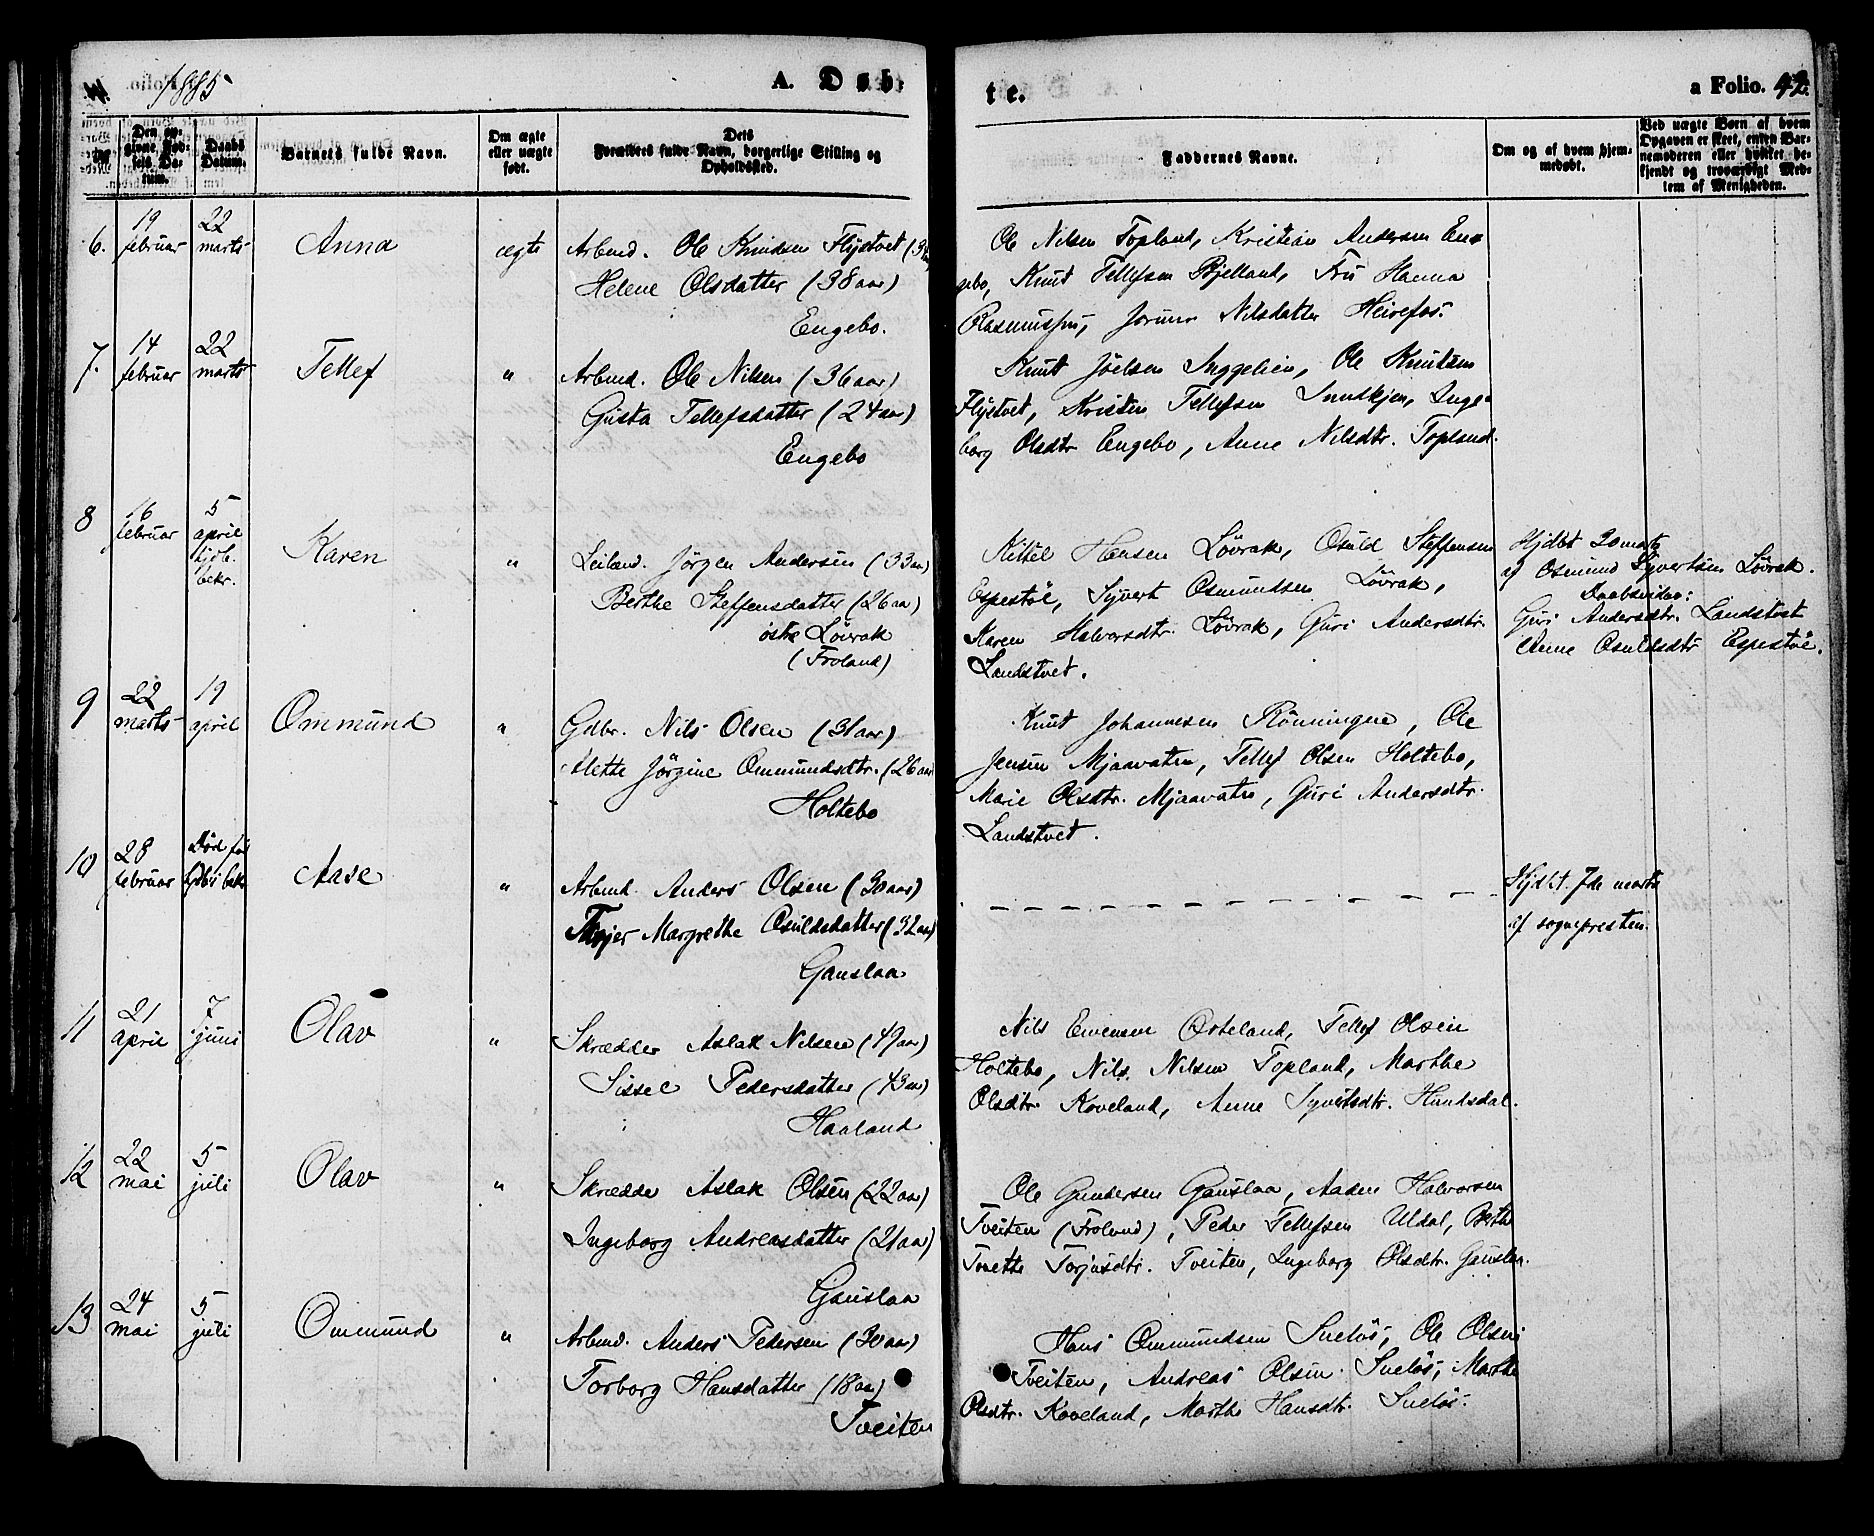 1885
A. Døb
te.
a Folio. 42.
Den opgivne Fødsels Datum.
Daabs Datum.
Barnets fulde Navn.
Om ægte eller uægte født.
Dets Forældres fulde Navn, borgerlige Stilling og Opholdssted.
Faddernes Navne.
Om og af hvem hjemmedøbt.
Ved uægte Børn af hvem Opgaven er skeet, enten Barnemoderen eller hvilket bekjendt og troværdigt Medlem af Menigheden.
6. 19 februar 22 marts Anna ægte
Arbmd. Ole Knudsen Flystvet
Helene Olsdatter (38 aar)
Engebo.
Ole Nilsen Topland, Kristian Andersen En-
gebo, Knut Tellefsen Bjelland, Fru Hanna
Rasmussen, Jorunn Nilsdatter Heirefos.
7. 14 februar 22 marts Tellef "
Arbmd. Ole Nilsen (36 aar)
Gusta Tellefsdatter (24 aar)
Engebo
Knut Joelsen Inggelien, Ole Knutsen
Flystvet, Kristen Tellefsen Inge-
borg Olsdtr Engebo, Anne Nilsdtr. Topland.
8 16 februar 5 april hjdb. bekr. Karen "
Leiland. Jørgen Andersen (33 aar)
Berthe Steffensdatter (26 aar)
østre Løvrak
(Froland)
Kittel Hansen Løvrak, Osuld Steffensen
Espestøl, Syvert Osmundsen Løvrak,
Karen Halvorsdtr. Løvrak, Guri Andersdtr.
Landstvet.
Hjdbt 20 marts
af Osmund Syvertsen Løvrak.
Daabsvidner:
Guri Andersdtr. Landstvet
Anne Osuldsdtr Espestøl.
9 22 marts 19 april Ommund "
Gdbr. Nils Olsen (31 aar)
Mette Jørgine Ommundsdtr. (26 aar
Holtebo
Knut Johannesen Rønningene, Ole
Jensen Mjaavatn, Tellef Olsen Holtebo,
Marie Olsdtr. Mjaavatn, Guri Andersdtr.
Landstvet.
10 28 februar Død før bekr Aase "
Arbmd. Anders Olsen (30 aar)
Margrethe Osuldsdatter (32 aar)
Gauslaa
Hjdbt. 7de marts
af sognepresten.
11 21 april 7 juni Olav "
Skrædder Aslak Nilsen (49 aar)
Sissel Pedersdatter (43 aar)
Haaland
Nils Evensen Østeland, Tellef Olsen
Holtebo, Nils Nilsen Topland, Marthe
Olsdtr Koveland, Anne Syvertsdtr. Hundsdal.
12 22 mai 5 juli Olav "
Skrædde Aslak Olsen (22 aar)
Ingeborg Andreasdatter (21 aar)
Gauslaa
Ole Gundersen Gauslaa, Aaden Halvorsen
Tveiten (Froland), Peder Tellefsen Uldal, Berthe
Tonette Torjusdtr. Tveiten, Ingeborg Olsdtr. Gauslaa.
13 24 mai 5 juli Ommund "
Arbmd. Anders Pedersen (30 aar)
Torborg Hansdatter (18 aar)
Tveiten
Hans Ommundsen Sueløs, Ole Olsen
Tveiten, Andreas Olsen Sueløs, Marthe
Olsdtr. Koveland, Marthe Hansdtr. Sueløs.